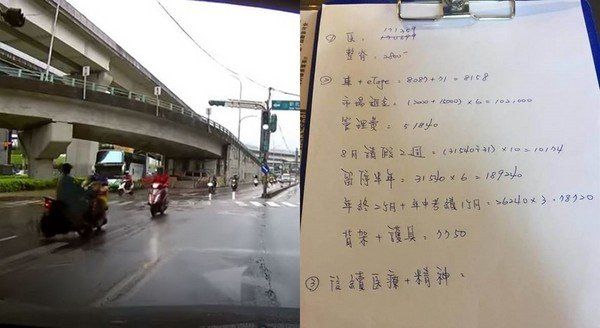 ① 医: 171309
整脊: 2800-
② 車 + etage = 8087+71 = 8158
市場租金: (2000+15000)×6=102,000
管理費: 51840
8月請假2週: (31540÷31)×10=10174
留停半年: 31540×6=189240
年終2.5月+年中考績1/2月=26240×3=78720
背架+護具: 7750
③ 後續医療+精神: